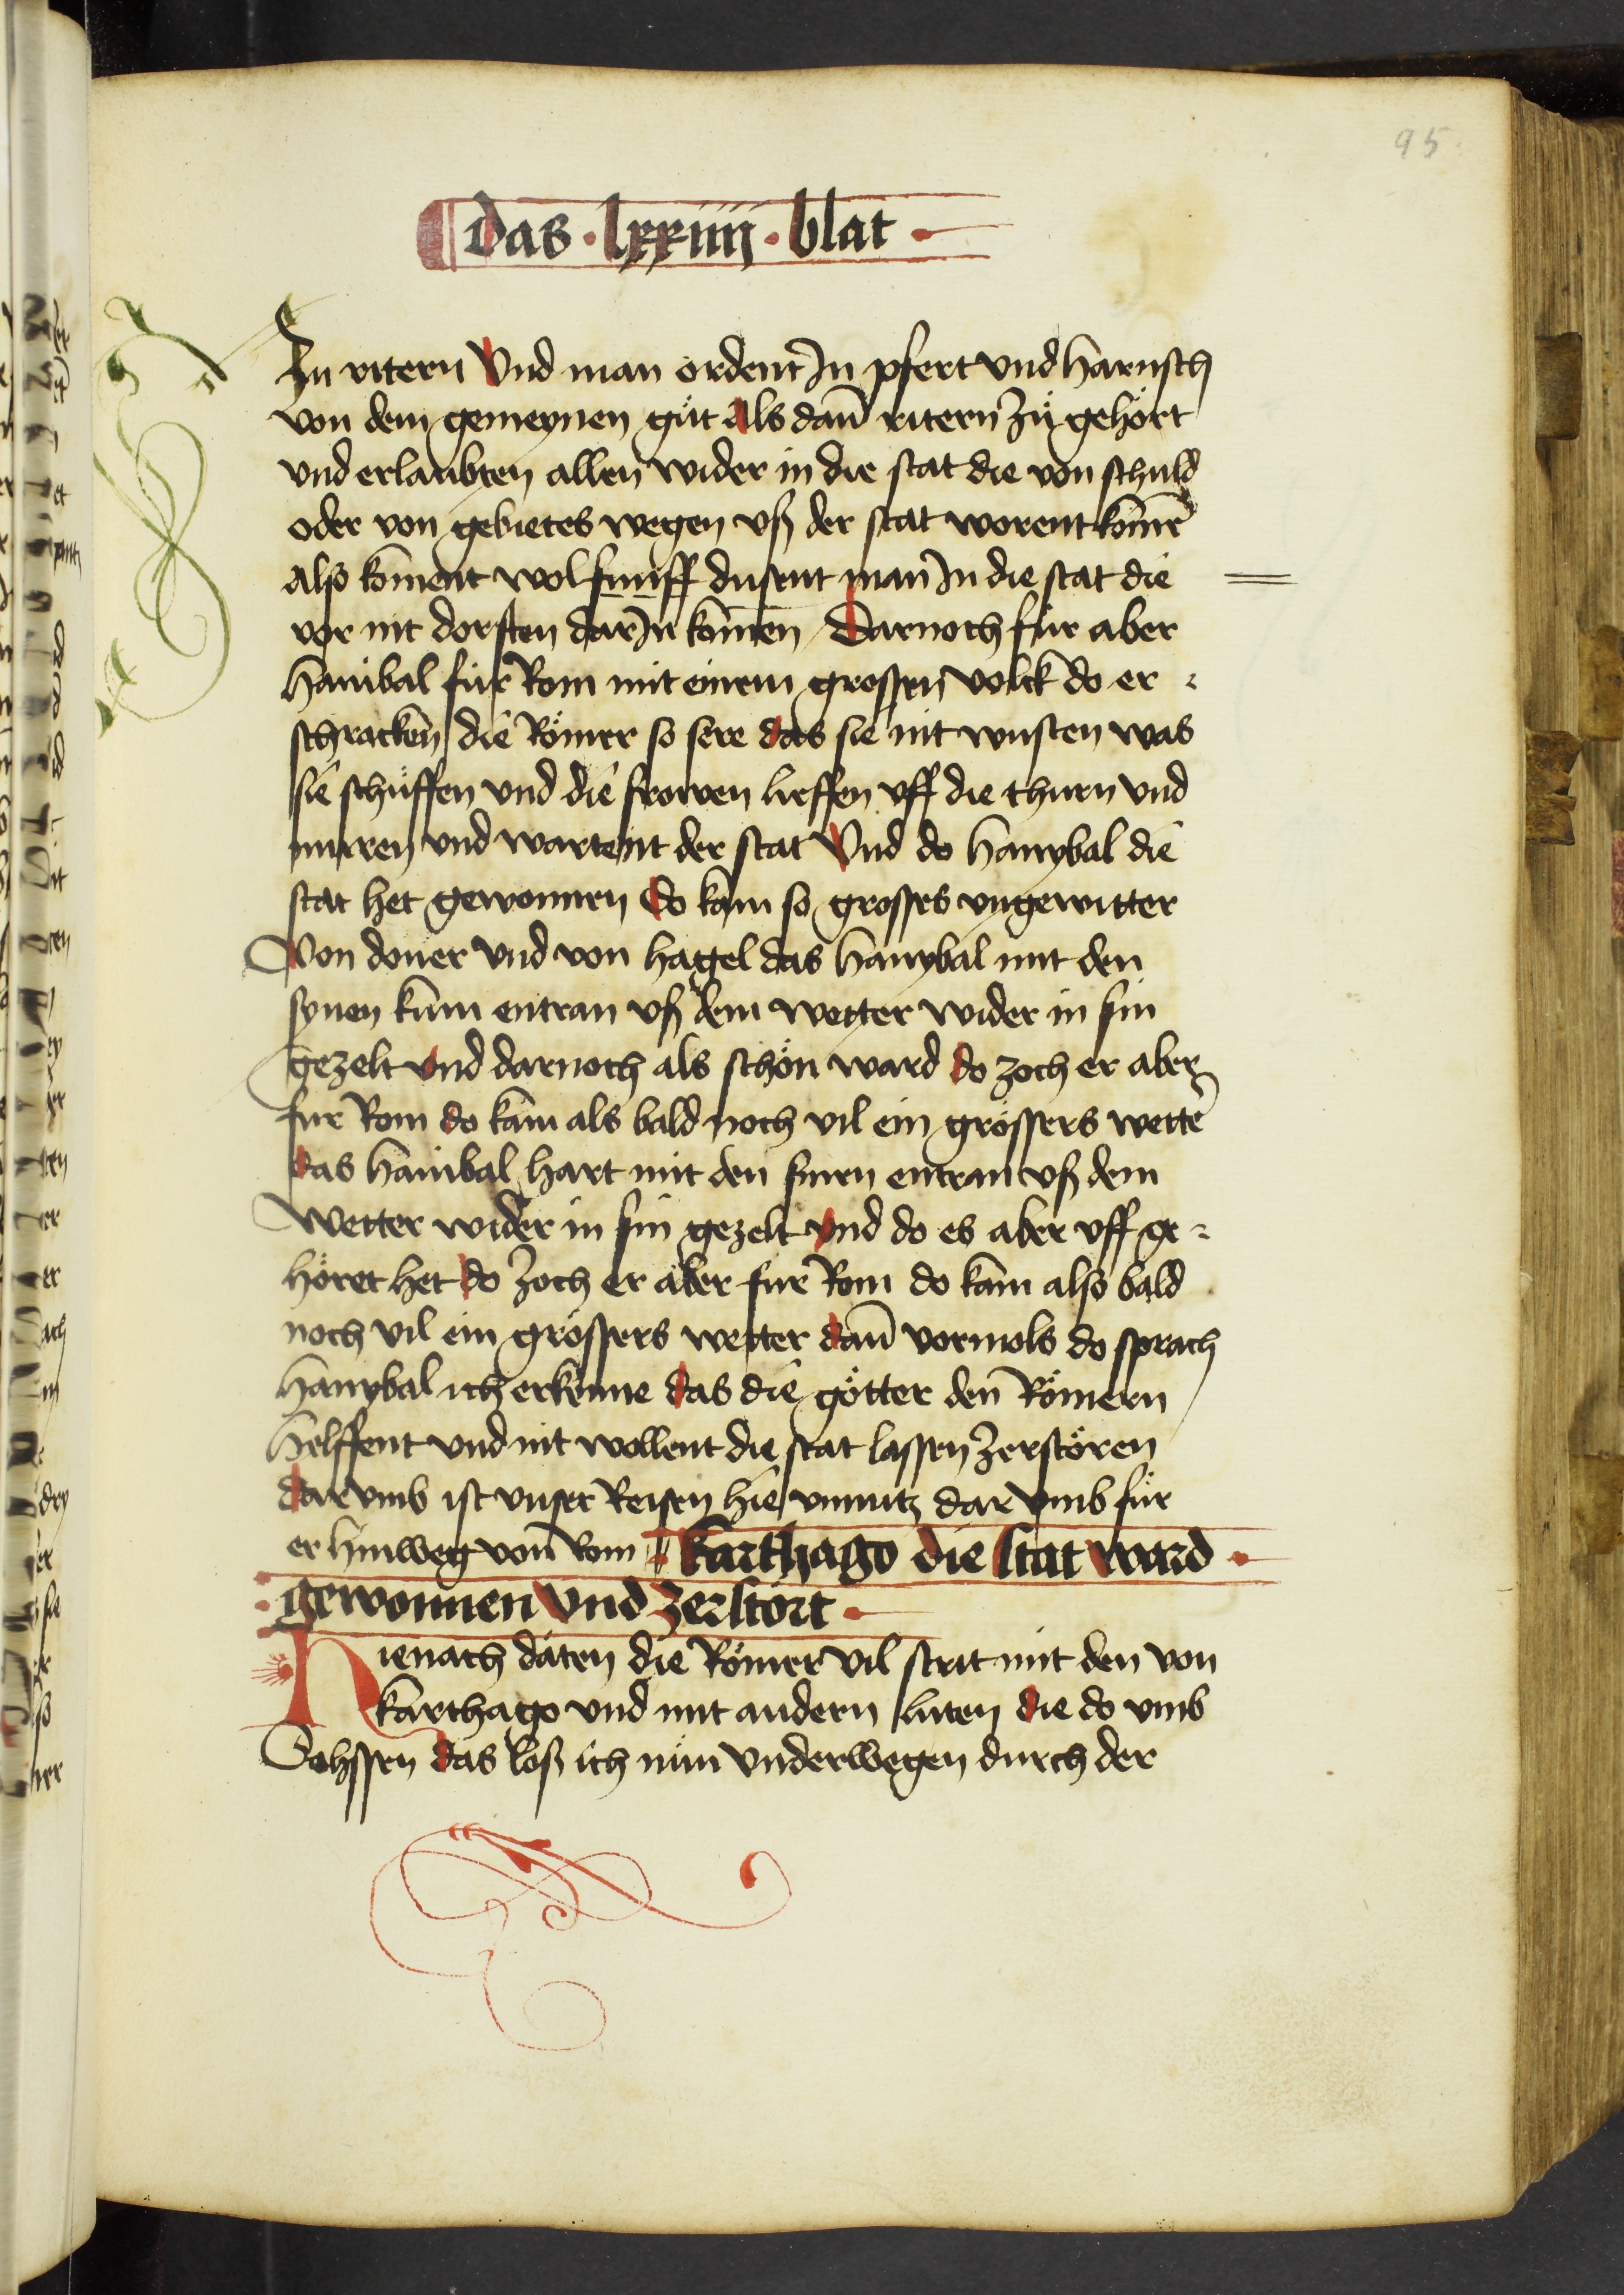 95
das · lxxiiii · blat ·
Zu ritern Vnd man ordent In pfert vnd harnsch
von dem gemeynen gůt Als dañ ritern zů gehört
vnd erlaubten allen wider in die stat die von schuld
oder von gebietes wegen vß der stat worent kōmē
also koment wol fünff dusent man In die stat die
vor nit dorften dar In komen Darnoch für aber
hanibal für Rom mit einem grossen volck do er -
schracken die Römer so sere das sie nit wusten was
sie schůffen vnd die frowen lieffen vff die thurn vnd
muren vnd wartent der stat Vnd do hanybal die
stat het gewonnen Do kam so grosses vngewitter
Von doner vnd von hagel das hanybal mit den
synen kum entran vß dem wetter wider in sin
gezelt Vnd darnoch als schön ward do zoch er aber
für Rom do kam als bald noch vil ein grössers wettē
das hanibal hart mit den sinen entran vß dem
Wetter wider in sin gezelt Vnd do es aber vff ge -
höret het do zoch er aber für Rom do kam also bald
noch vil ein grössers wetter dañ vormols do sprach
hanybal ich erkenne das die götter den Römern
helffent vnd nit wollent die stat lassen zerstören
dar vmb ist vnser Reisen hie vnnutz dar vmb für
er hinweg von Rom Karthago die stat ward ·
· gewonnen Vnd zerstort ·
Hienach daten die Römer vil strit mit den von
karthago vnd mit andern luten die do vmb
Sohssen das loß ich nůn vnderwegen durch der